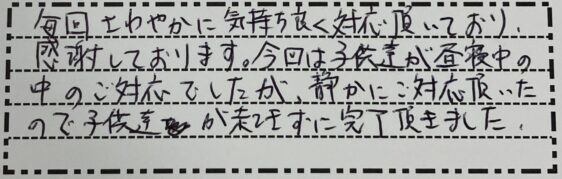 毎回さわやかに気持ち良く対応頂いており、
感謝しております。今回は子供達が昼寝中の
中のご対応でしたが、静かにご対応頂いた
ので子供達が起きずに完了頂きました。